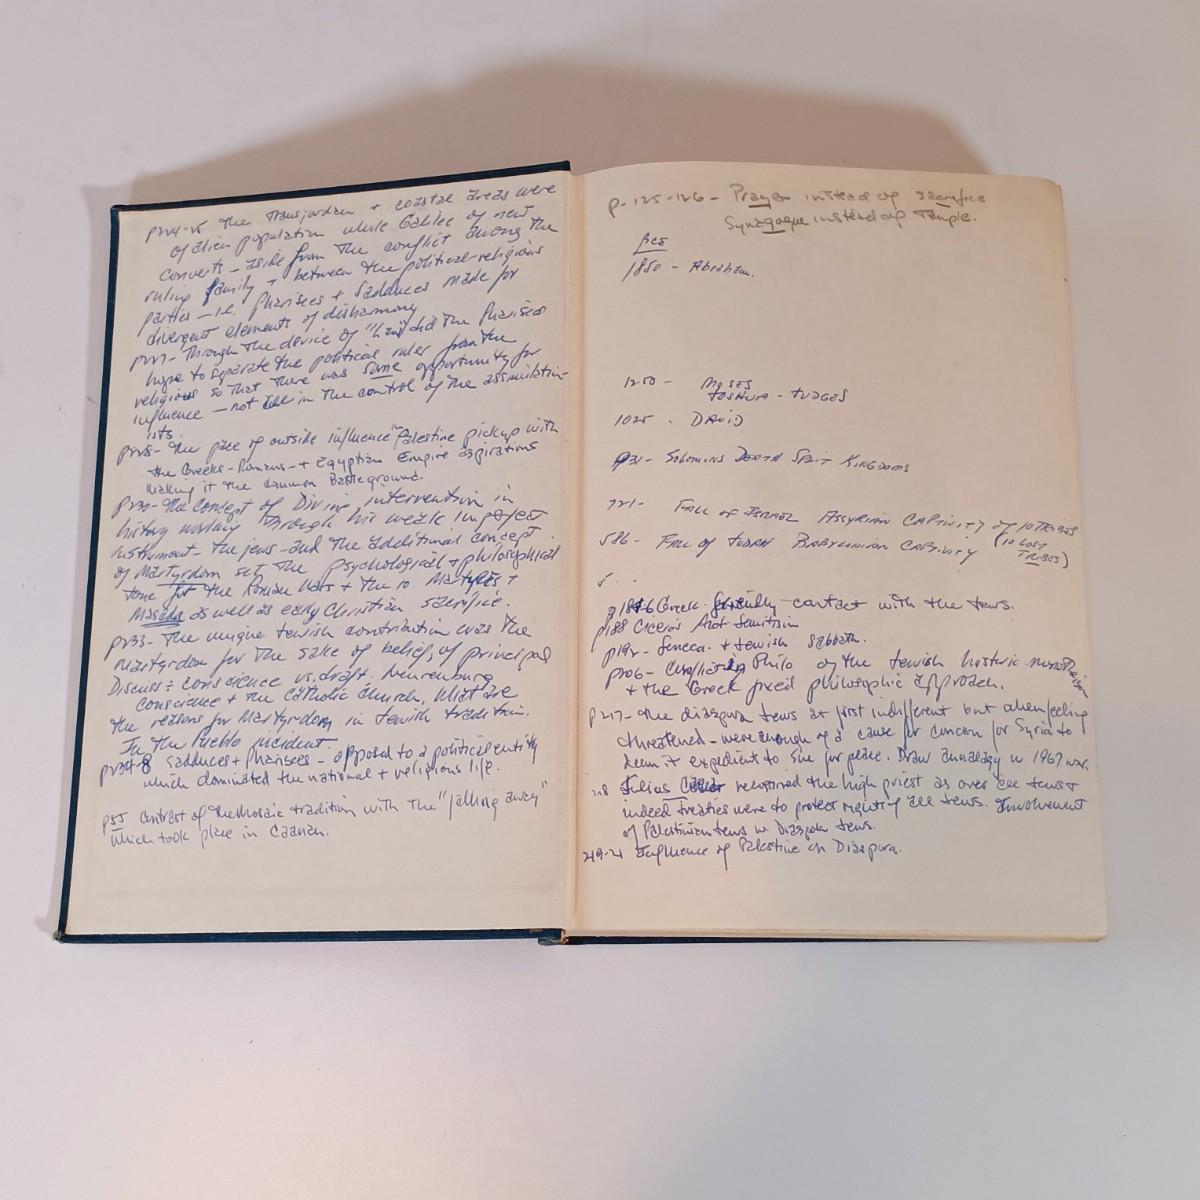 p224-25 The Transjordan + coastal areas were
of alien population while Galilee of new
converts - aside from the conflict among the
ruling family + between the political-religious
parties - i.e. Pharisees + Sadduces made for
divergent elements of disharmony
p227 - Through the device of "law" did the Pharisees
hope to separate the political ruler from the
religious so that there was some opportunity for
influence - not all in the control of the assimilation-
ists.
p228 - The place of outside influence in Palestine pickup with
the Greeks - Romans - + Egyptian Empire aspirations
making it the common Battleground.
p230 - The concept of Divine intervention in
history working through his weak imperfect
instrument - the jews - and the additional concept
of Martyrdom set the psychological + philosophical
tone for the Roman Wars + the 10 Martyrs +
Masada as well as early Christian sacrifice.
p233 - The unique Jewish contribution was the
Martyrdom for the sake of belief, of principal
Discuss: conscience vs. draft. Neurenburg
conscience + the Catholic Church. What are
the reasons for Martyrdom in Jewish tradition.
In the Pueblo incident.
Sadduces + Pharisees - opposed to a political entity
which dominated the national + religious life.
p55 Contrast of the Mosaic tradition with the "falling away"
which took place in Caanan.
p-125-126 - Prayer instead of sacrifice
Synagogue instead of Temple.
BCE
1850 - Abraham.
1250 - Moses
Joshua - Judges
1025 - David
931 - Solomons Death Split Kingdoms
721 - Fall of Israel Assyrian Captivity of 10 Tribes
(10 Lost
586 - Fall of Judah Babylonian Captivity
Tribes)
Greek friendly contact with the Jews.
p188 Ciceros Anti Semitism
p192 - Seneca + Jewish Sabbath.
p206 - Conflict in Philo of the Jewish historic monotheism
+ the Greek fixed philosophic approach.
p217 - The diaspora Jews at first indifferent but when feeling
threatened - were enough of a cause for concern for Syria to
deem it expedient to sue for peace. Draw annalagy w 1967 war.
218 Julius Caesar the high priest as over all Jews +
indeed treaties were to protect rights of all Jews. Involvement
of Palestinian Jews w. Diaspora Jews.
219-21 Influence of Palestine on Diaspora.